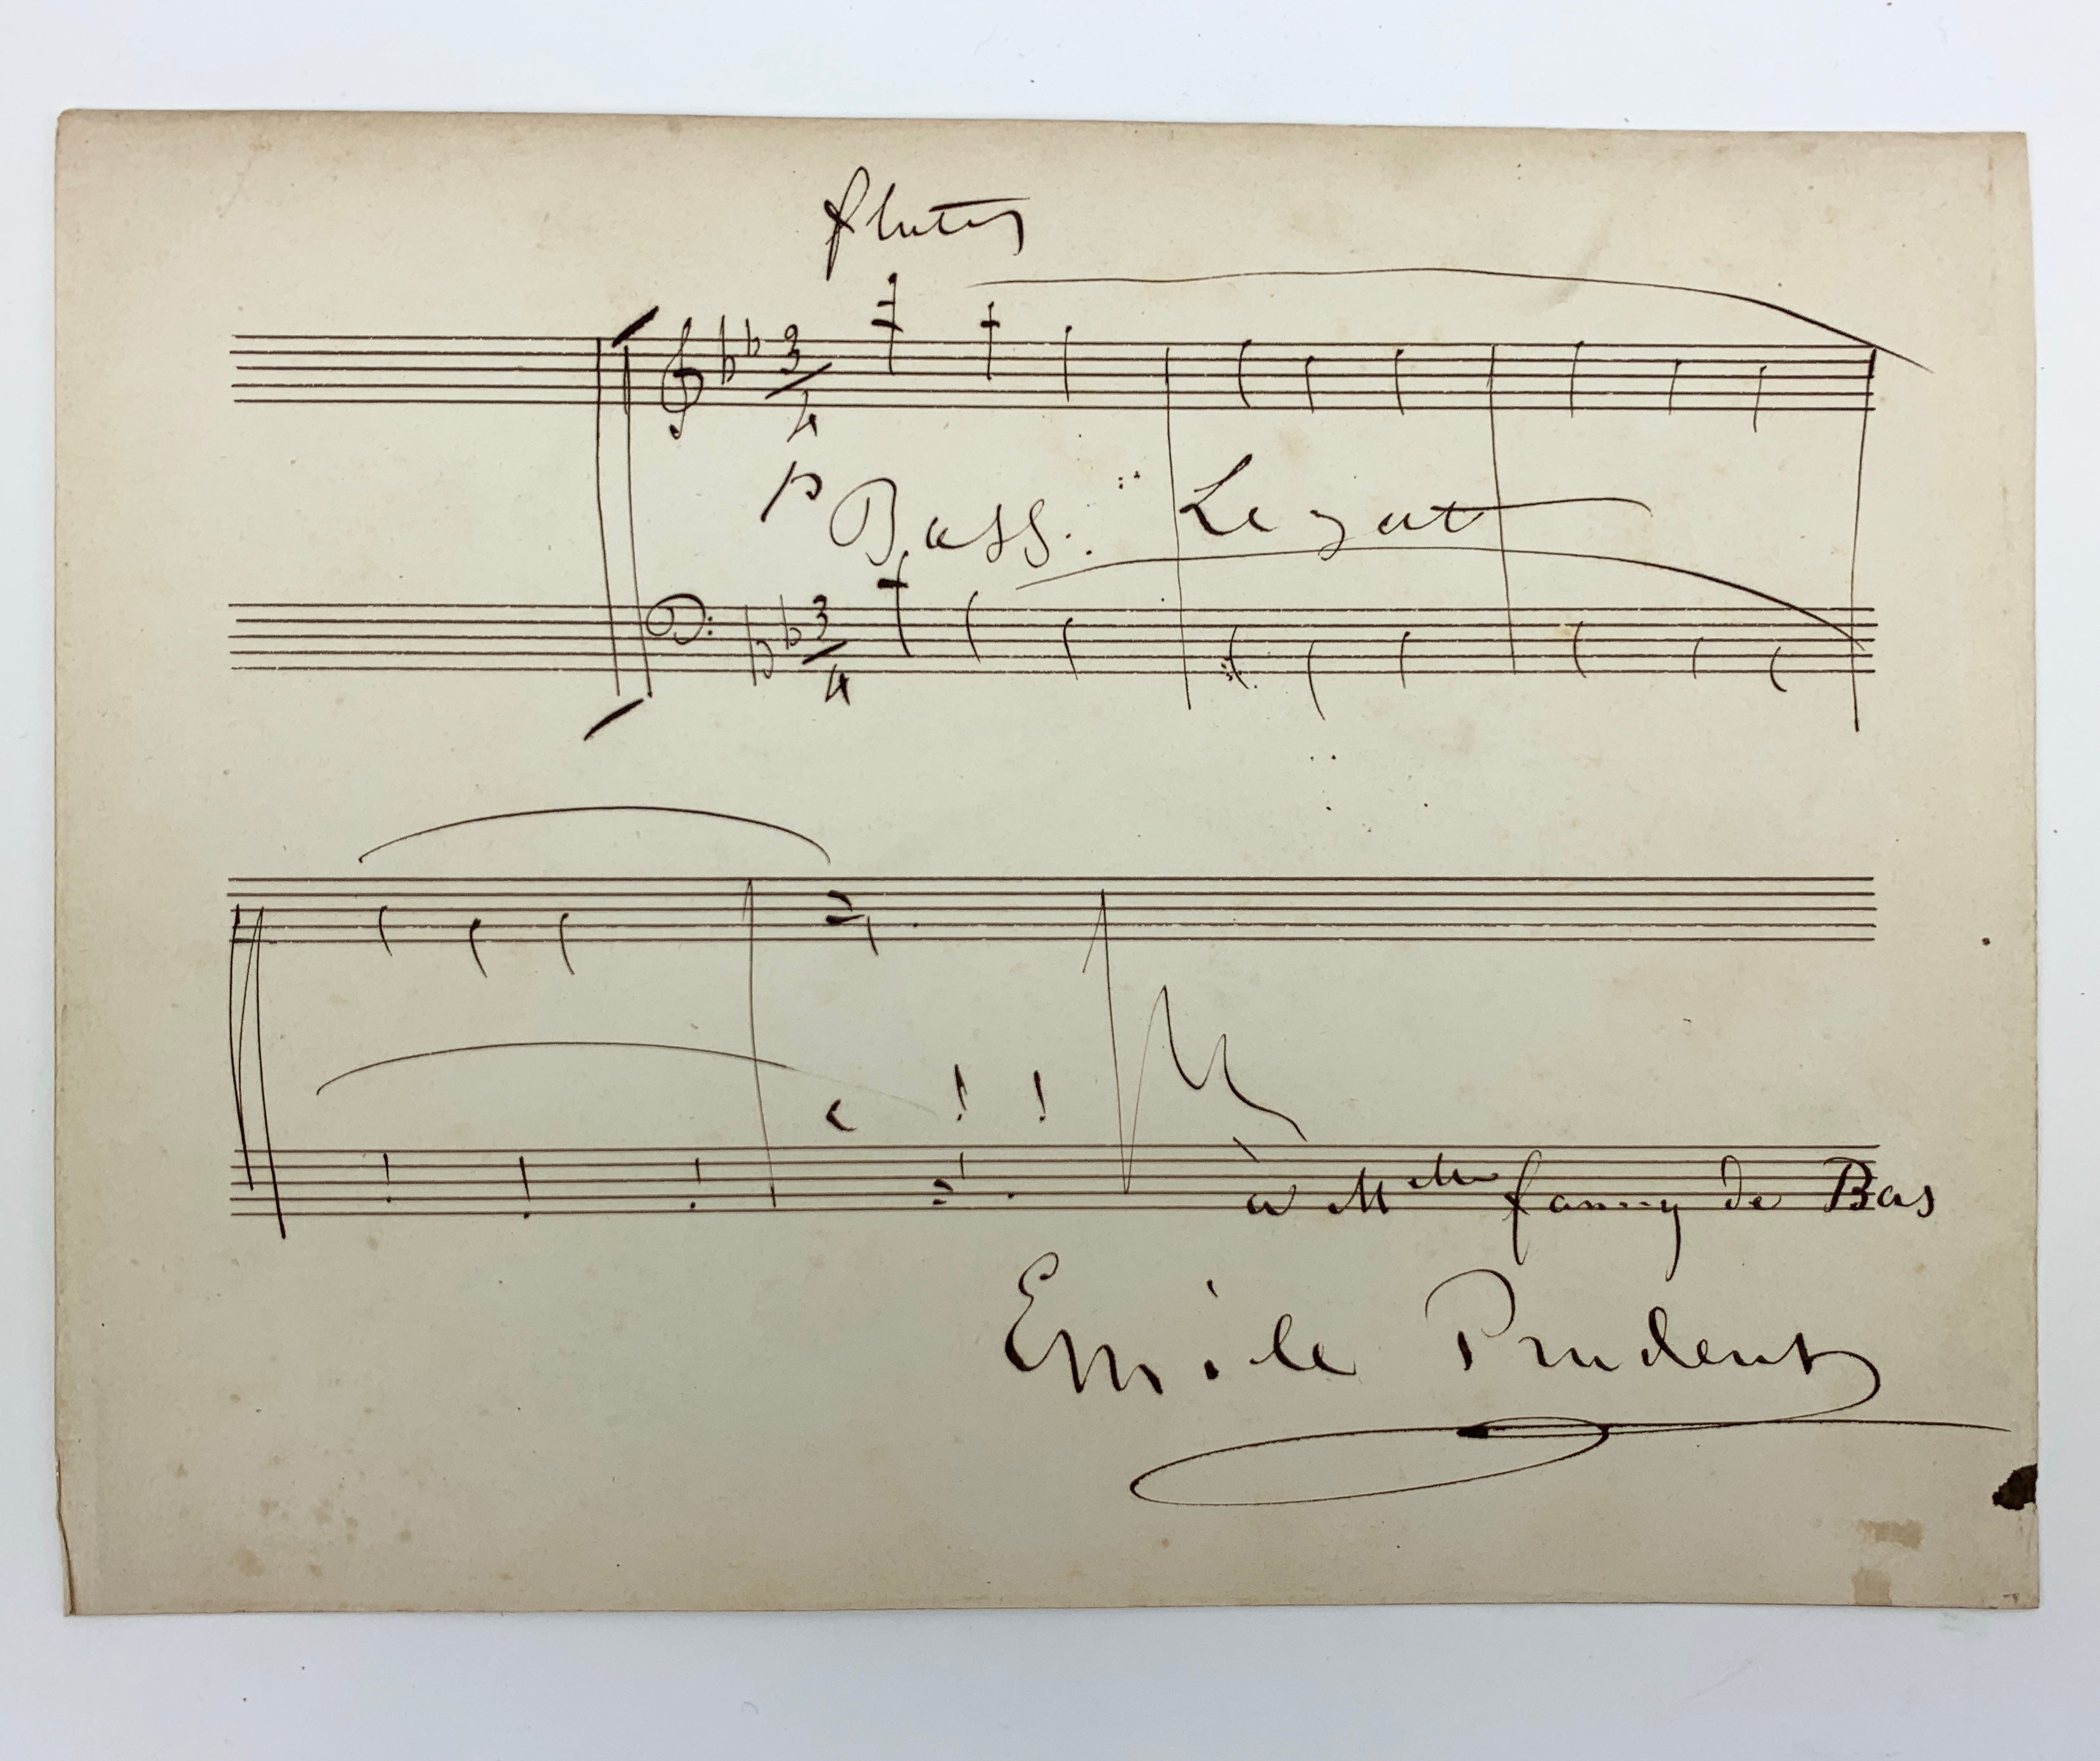 flutes
3/4
p Bass: Legat
3/4
à Mlle fanny de Bas
Emile Prudent